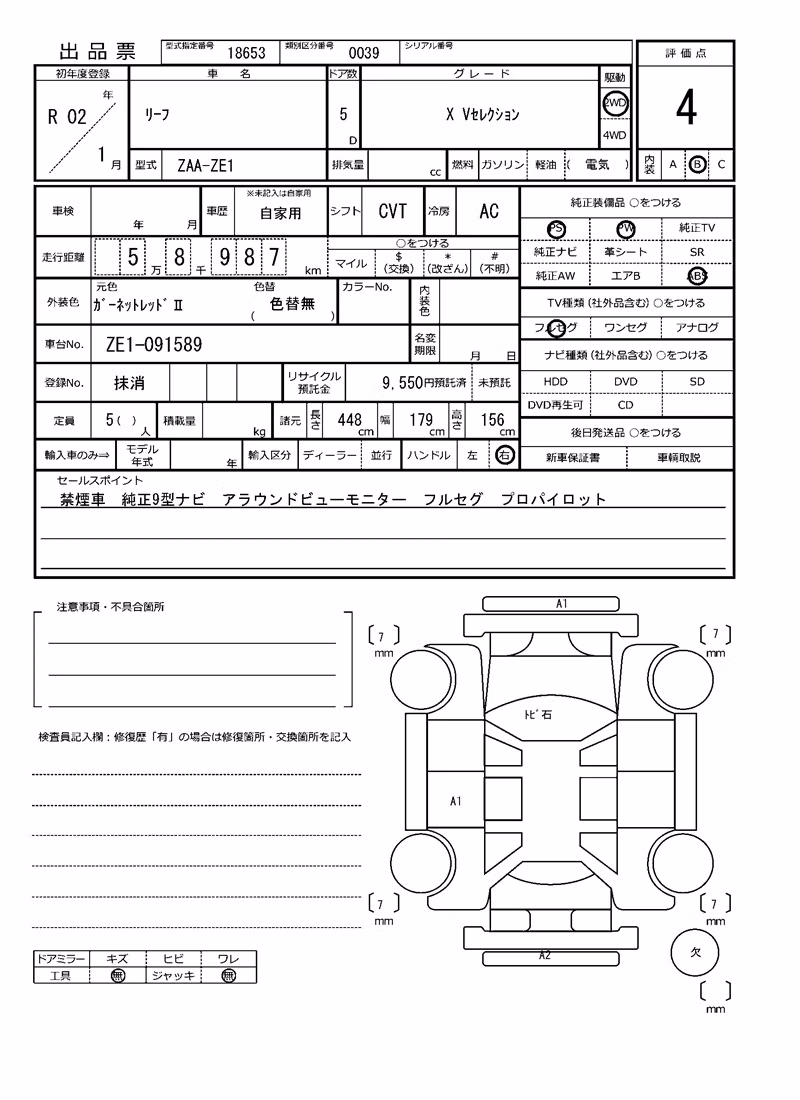 出品票 型式指定番号 18653 類別区分番号 0039 シリアル番号
評価点
4
内装 A B C
初年度登録 車名 ドア数 グレード 駆動
R 02 年 1 月 リーフ 5 D X Vセレクション 2WD
4WD
型式 ZAA-ZE1 排気量 cc 燃料 ガソリン 軽油 ( 電気 )
車検 年 月 車歴 ※未記入は自家用 自家用 シフト CVT 冷房 AC
走行距離 5 万 8 千 9 8 7 km
○をつける
マイル $ (交換) * (改ざん) # (不明)
外装色 元色 ガーネットレッドⅡ 色替 ( 色替無 ) カラーNo. 内装色
車台No. ZE1-091589 名変期限 月 日
登録No. 抹消 リサイクル預託金 9,550円預託済 未預託
定員 5 ( ) 人 積載量 kg 諸元 長さ 448 cm 幅 179 cm 高さ 156 cm
輸入車のみ⇒ モデル年式 年 輸入区分 ディーラー 並行 ハンドル 左 右
純正装備品 ○をつける
PS PW 純正TV
純正ナビ 革シート SR
純正AW エアB ABS
TV種類(社外品含む)○をつける
フルセグ ワンセグ アナログ
ナビ種類(社外品含む)○をつける
HDD DVD SD
DVD再生可 CD
後日発送品 ○をつける
新車保証書 車輌取説
セールスポイント
禁煙車 純正9型ナビ アラウンドビューモニター フルセグ プロパイロット
注意事項・不具合箇所
検査員記入欄:修復歴「有」の場合は修復箇所・交換箇所を記入
ドアミラー キズ ヒビ ワレ
工具 無 ジャッキ 無
A1
7 mm
7 mm
トビ石
A1
7 mm
7 mm
A2
欠
mm